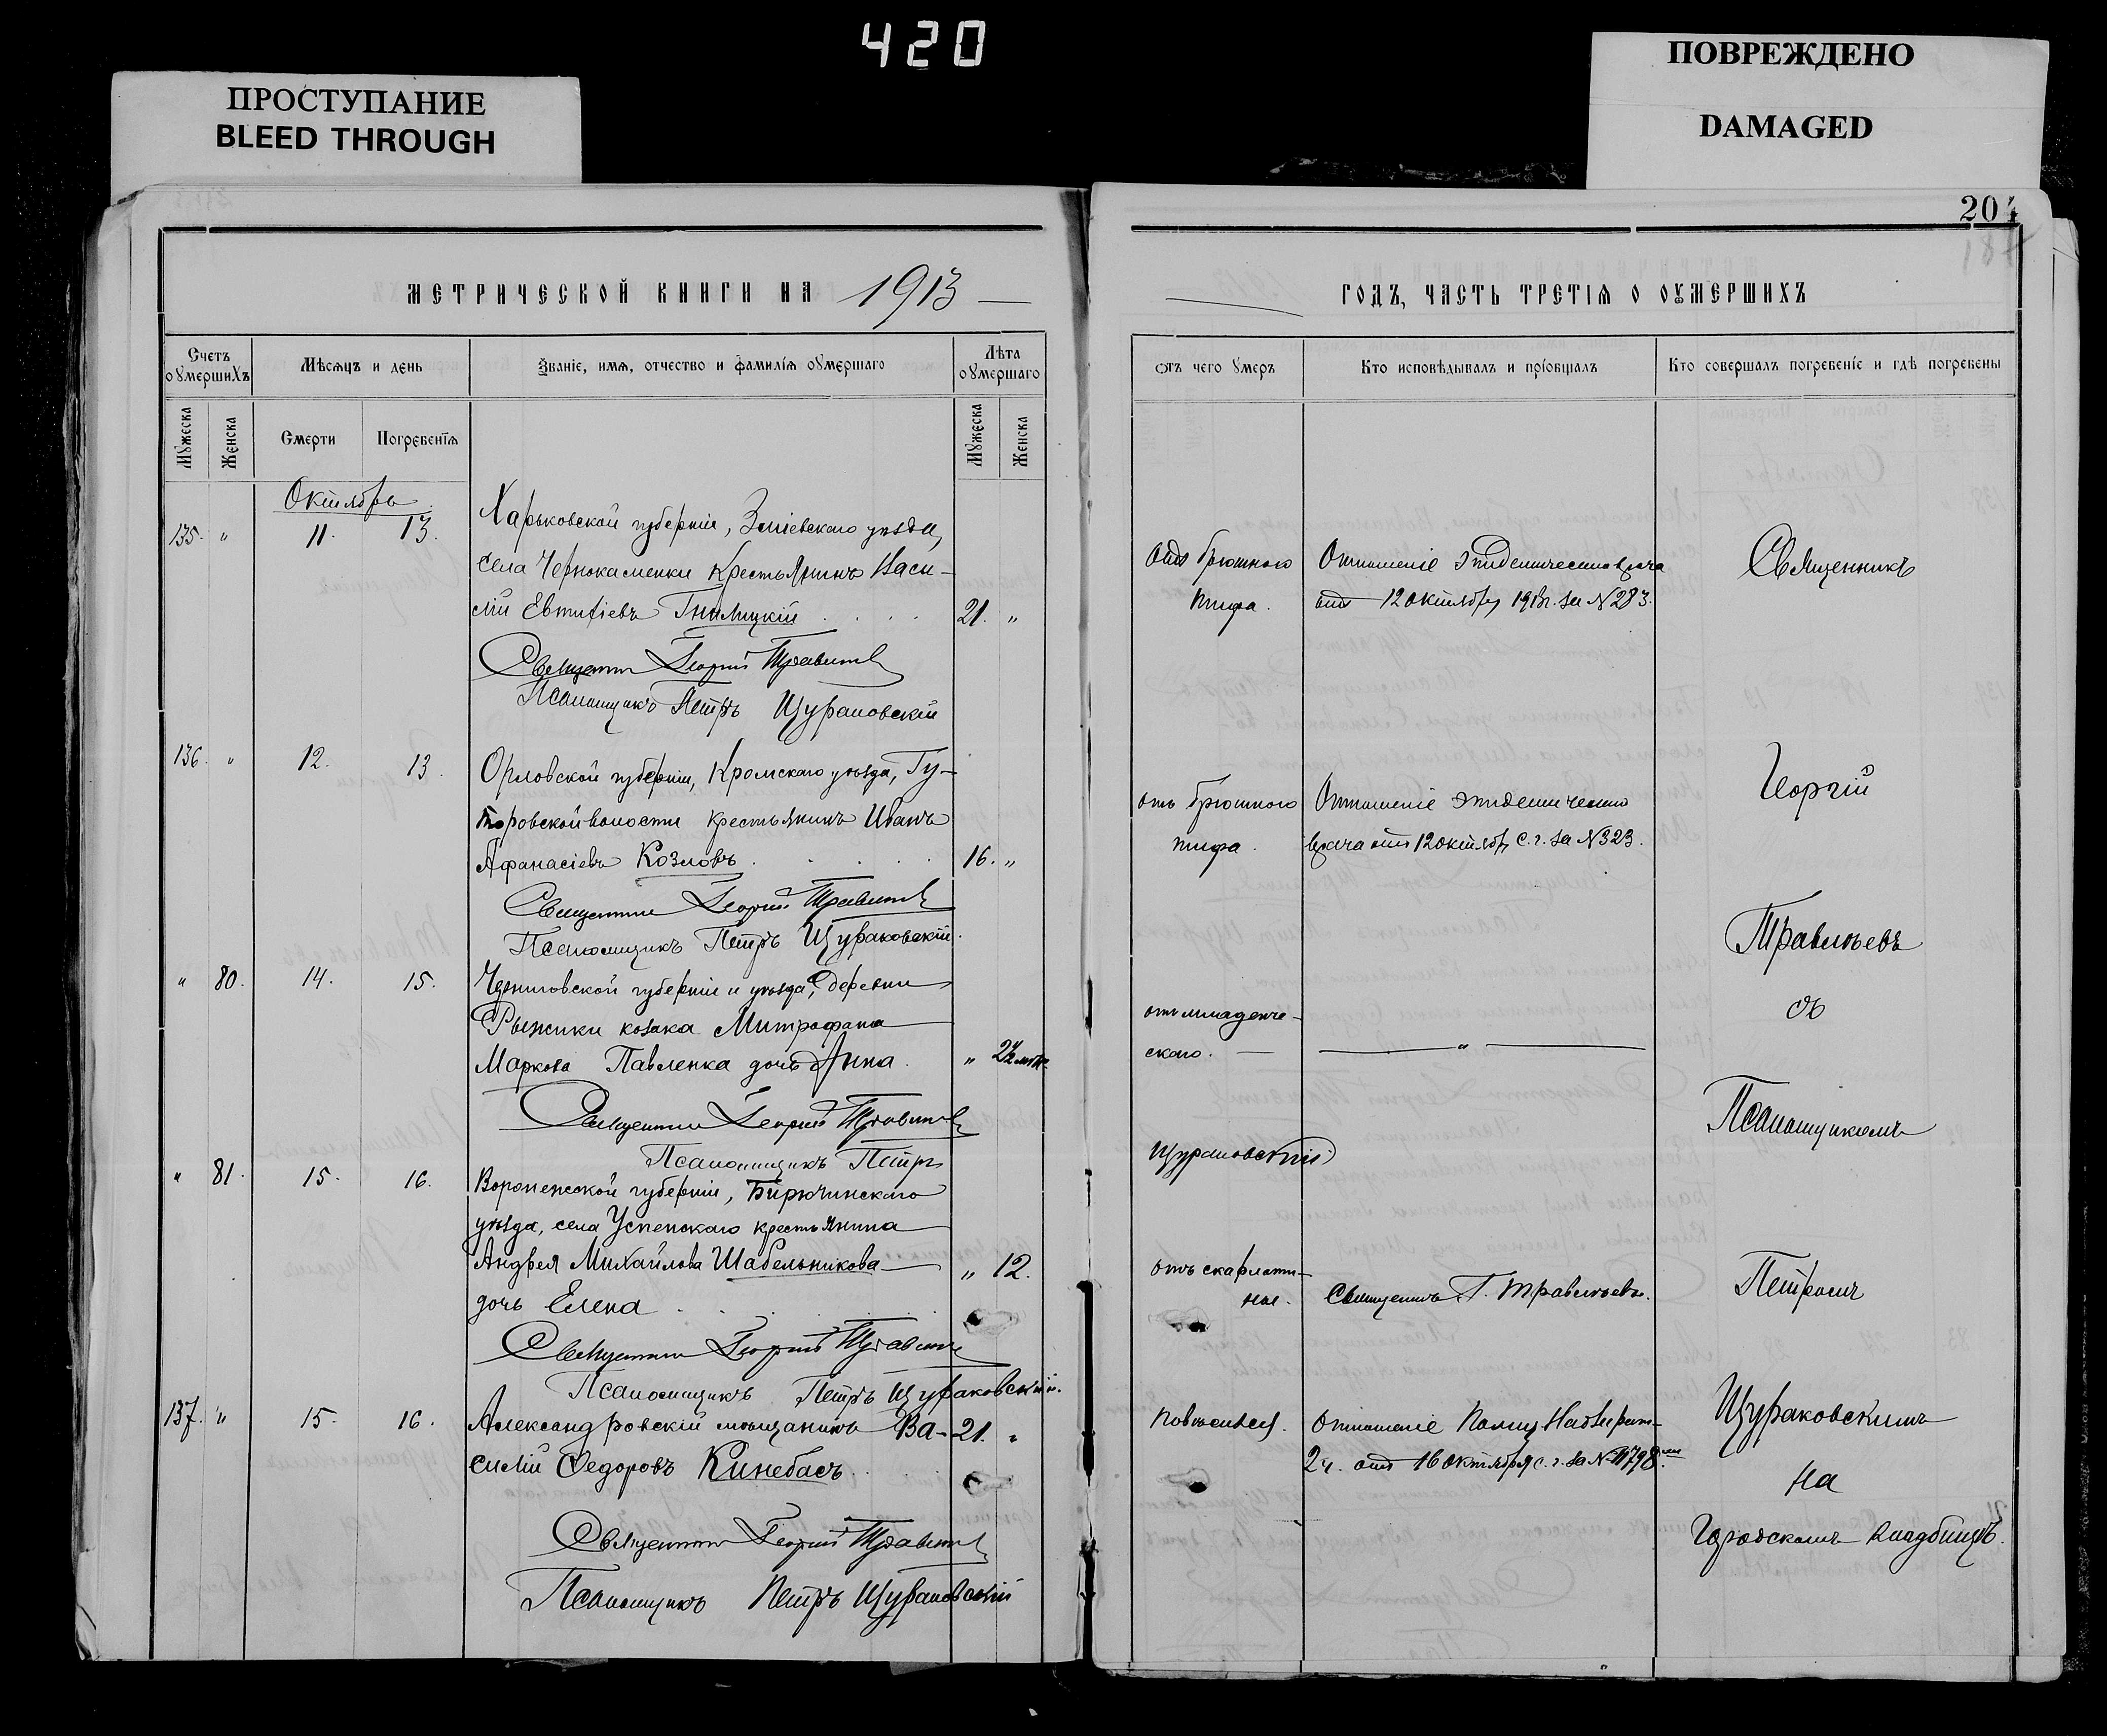 420
ПРОСТУПАНИЕ
BLEED THROUGH
ПОВРЕЖДЕНО
DAMAGED
204
187
МЕТРИЧЕСКОЙ КНИГИ НА 1913
Счетъ оумершихъ
Мѣсяцъ и день
Званіе, имя, отчество и фамилія оумершаго
Лѣта оумершаго
Мужеска
Женска
Смерти
Погребенія
Мужеска
Женска
Октябрь
135. " 11. 13. Харьковской губерніи, Зміевскаго уѣзда,
села Чернокаменки крестьянинъ Васи-
лій Евтифіевъ Гнилицкій 21. "
Священникъ Георгій Травлѣевъ
Псаломщикъ Петръ Щураковскій
136. " 12. 13. Орловской губерніи, Кромскаго уѣзда, Гу-
торовской волости крестьянинъ Иванъ
Афанасіевъ Козловъ 16. "
Священникъ Георгій Травлѣевъ
Псаломщикъ Петръ Щураковскій.
" 80. 14. 15. Черниговской губерніи и уѣзда, деревни
Рыжики козака Митрофана
Маркова Павленка дочь Анна. " 2½
Священникъ Георгій Травлѣевъ
Псаломщикъ Петръ
" 81. 15. 16. Воронежской губерніи, Бирючинскаго
уѣзда, села Успенскаго крестьянина
Андрея Михайлова Шабельникова " 12.
дочь Елена
Священникъ Георгій Травлѣевъ
Псаломщикъ Петръ Щураковскій.
137. " 15. 16. Александровскій мѣщанинъ Ва- 21. "
силій Федоровъ Кинебасъ
Священникъ Георгій Травлѣевъ
Псаломщикъ Петръ Щураковскій
ГОДЪ, ЧАСТЬ ТРЕТІЯ О ОУМЕРШИХЪ
Отъ чего умеръ
Кто исповѣдывалъ и пріобщалъ
Кто совершалъ погребеніе и гдѣ погребены
Отъ брюшного Отношеніе эпидемическаго врача
тифа. отъ 12 октября 1913г. за № 283.
Священникъ
отъ брюшного Отношеніе эпидемическаго
тифа. врача отъ 12 октябр. с. г. за № 323.
Георгій
Травлѣевъ
съ
отъ младенче-
скаго. "
Псаломщикомъ
Щураковскій
отъ скарлати-
ны. Священникъ Г. Травлѣевъ.
Петромъ
повѣсился. Отношеніе Полиц. Надзират.
2 ч. отъ 16 октября с. г. за № 11798.
Щураковскимъ
на
Городскомъ кладбищѣ.